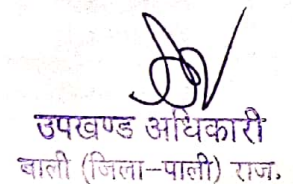 उपखण्ड अधिकारी
बाली (जिला-पाली) राज.